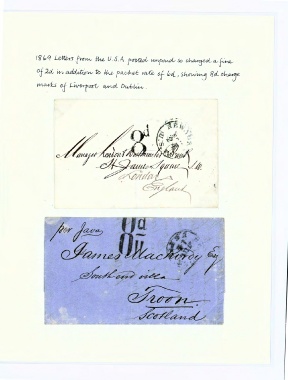 1869 Letters from the U.S.A posted unpaid so charged a fine
of 2d in addition to the packet rate of 6d, showing 8d charge
marks of Liverpool and Dublin.
8d
St James Square
London
England
per Java
8d
James Mackirdy Esq
South end villa
Troon
Scotland